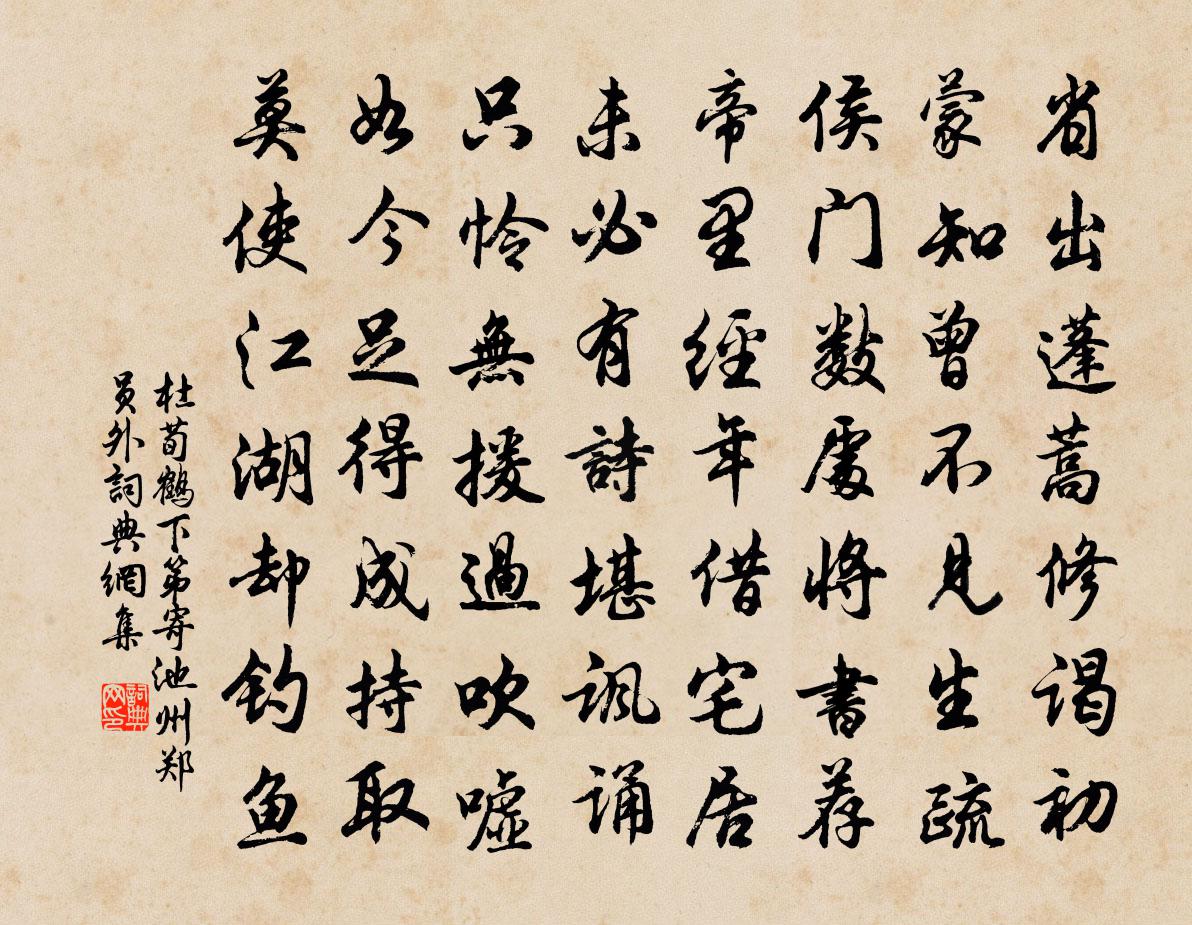 省出蓬蒿修谒初
蒙知曾不见生疏
侯门数处将书荐
帝里经年借宅居
未必有詩堪讽诵
只怜無援過吹嘘
如今足得成持取
莫使江湖却钓鱼
杜荀鹤下第寄池州郑
员外詞典網集
詞典网印